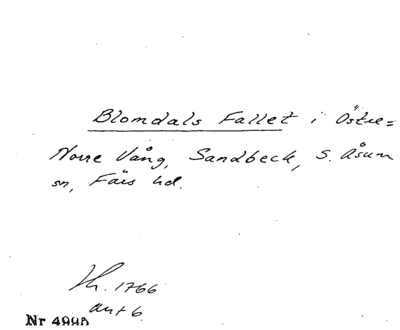 Blomdals Fallet i Östre=
Norre Vång, Sandbeck, S. Åsum
sn, Färs hd.
1766
akt 6
Nr 4996